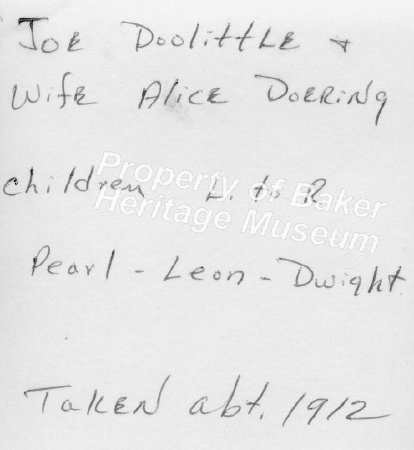 Joe Doolittle +
Wife Alice Doering
children L. to R.
Property of Baker
Heritage Museum
Pearl - Leon - Dwight
Taken abt. 1912